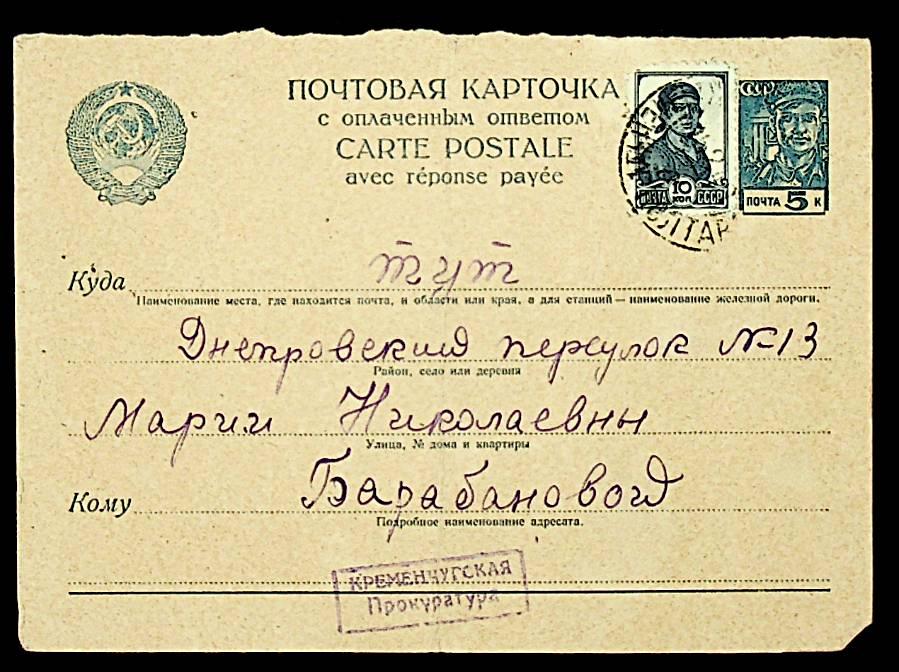 ПОЧТОВАЯ КАРТОЧКА
с оплаченным ответом
CARTE POSTALE
avec réponse payée
10
КОП
ПОЧТА СССР
СССР
ПОЧТА 5 К
ПОЛТАВ
Куда тут
Наименование места, где находится почта, и области или края, а для станций — наименование железной дороги.
Днепровский переулок №13
Район, село или деревня
Марии Николаевны
Улица, № дома и квартиры
Кому Барабановой
Подробное наименование адресата.
КРЕМЕНЧУГСКАЯ
Прокуратура